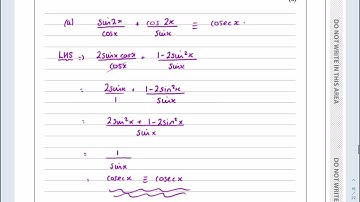 (a) sin2x/cosx + cos2x/sinx ≡ cosecx.
LHS => 2sinxcosx/cosx + 1-2sin²x/sinx
= 2sinx/1 + 1-2sin²x/sinx
= 2sin²x + 1-2sin²x/sinx
= 1/sinx
= cosecx ≡ cosecx
DO NOT WRITE IN THIS AREA
DO NOT WRITE